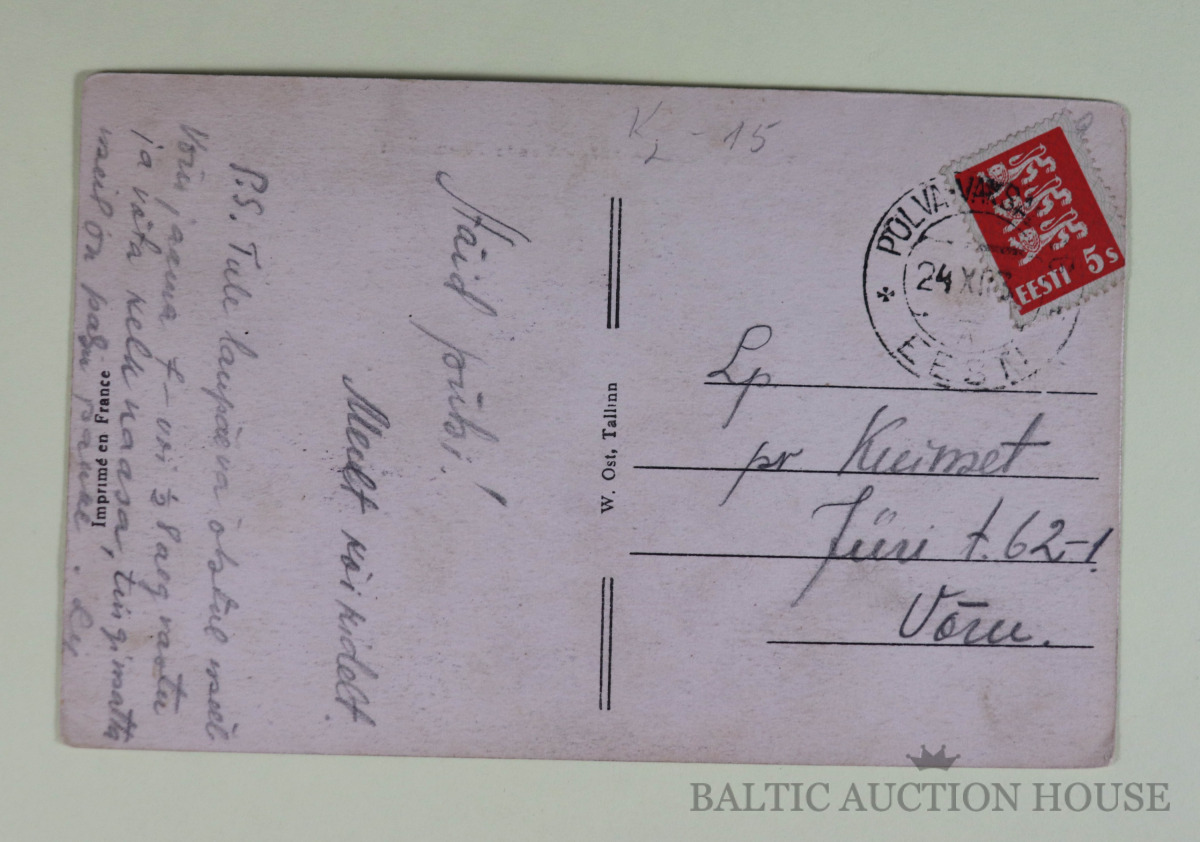 K2 - 15
Häid pühi!
Meilt kõikidelt.
P.S. Tule laupäeva õhtul meile
Võru jaama 7 - või ½ 8 aeg vastu
ja võta kelk kaasa, tingimatta
meil on palju panne. Ly
Imprimé en France
W. Ost, Tallinn
PÕLVA-VAKS.
24 XII
EESTI
EESTI 5 s
Lp.
pr Kuimet
Jüri t. 62-1.
Võru.
BALTIC AUCTION HOUSE